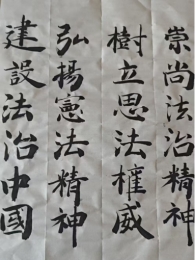 崇尚法治精神
樹立思法權威
弘揚憲法精神
建設法治中國